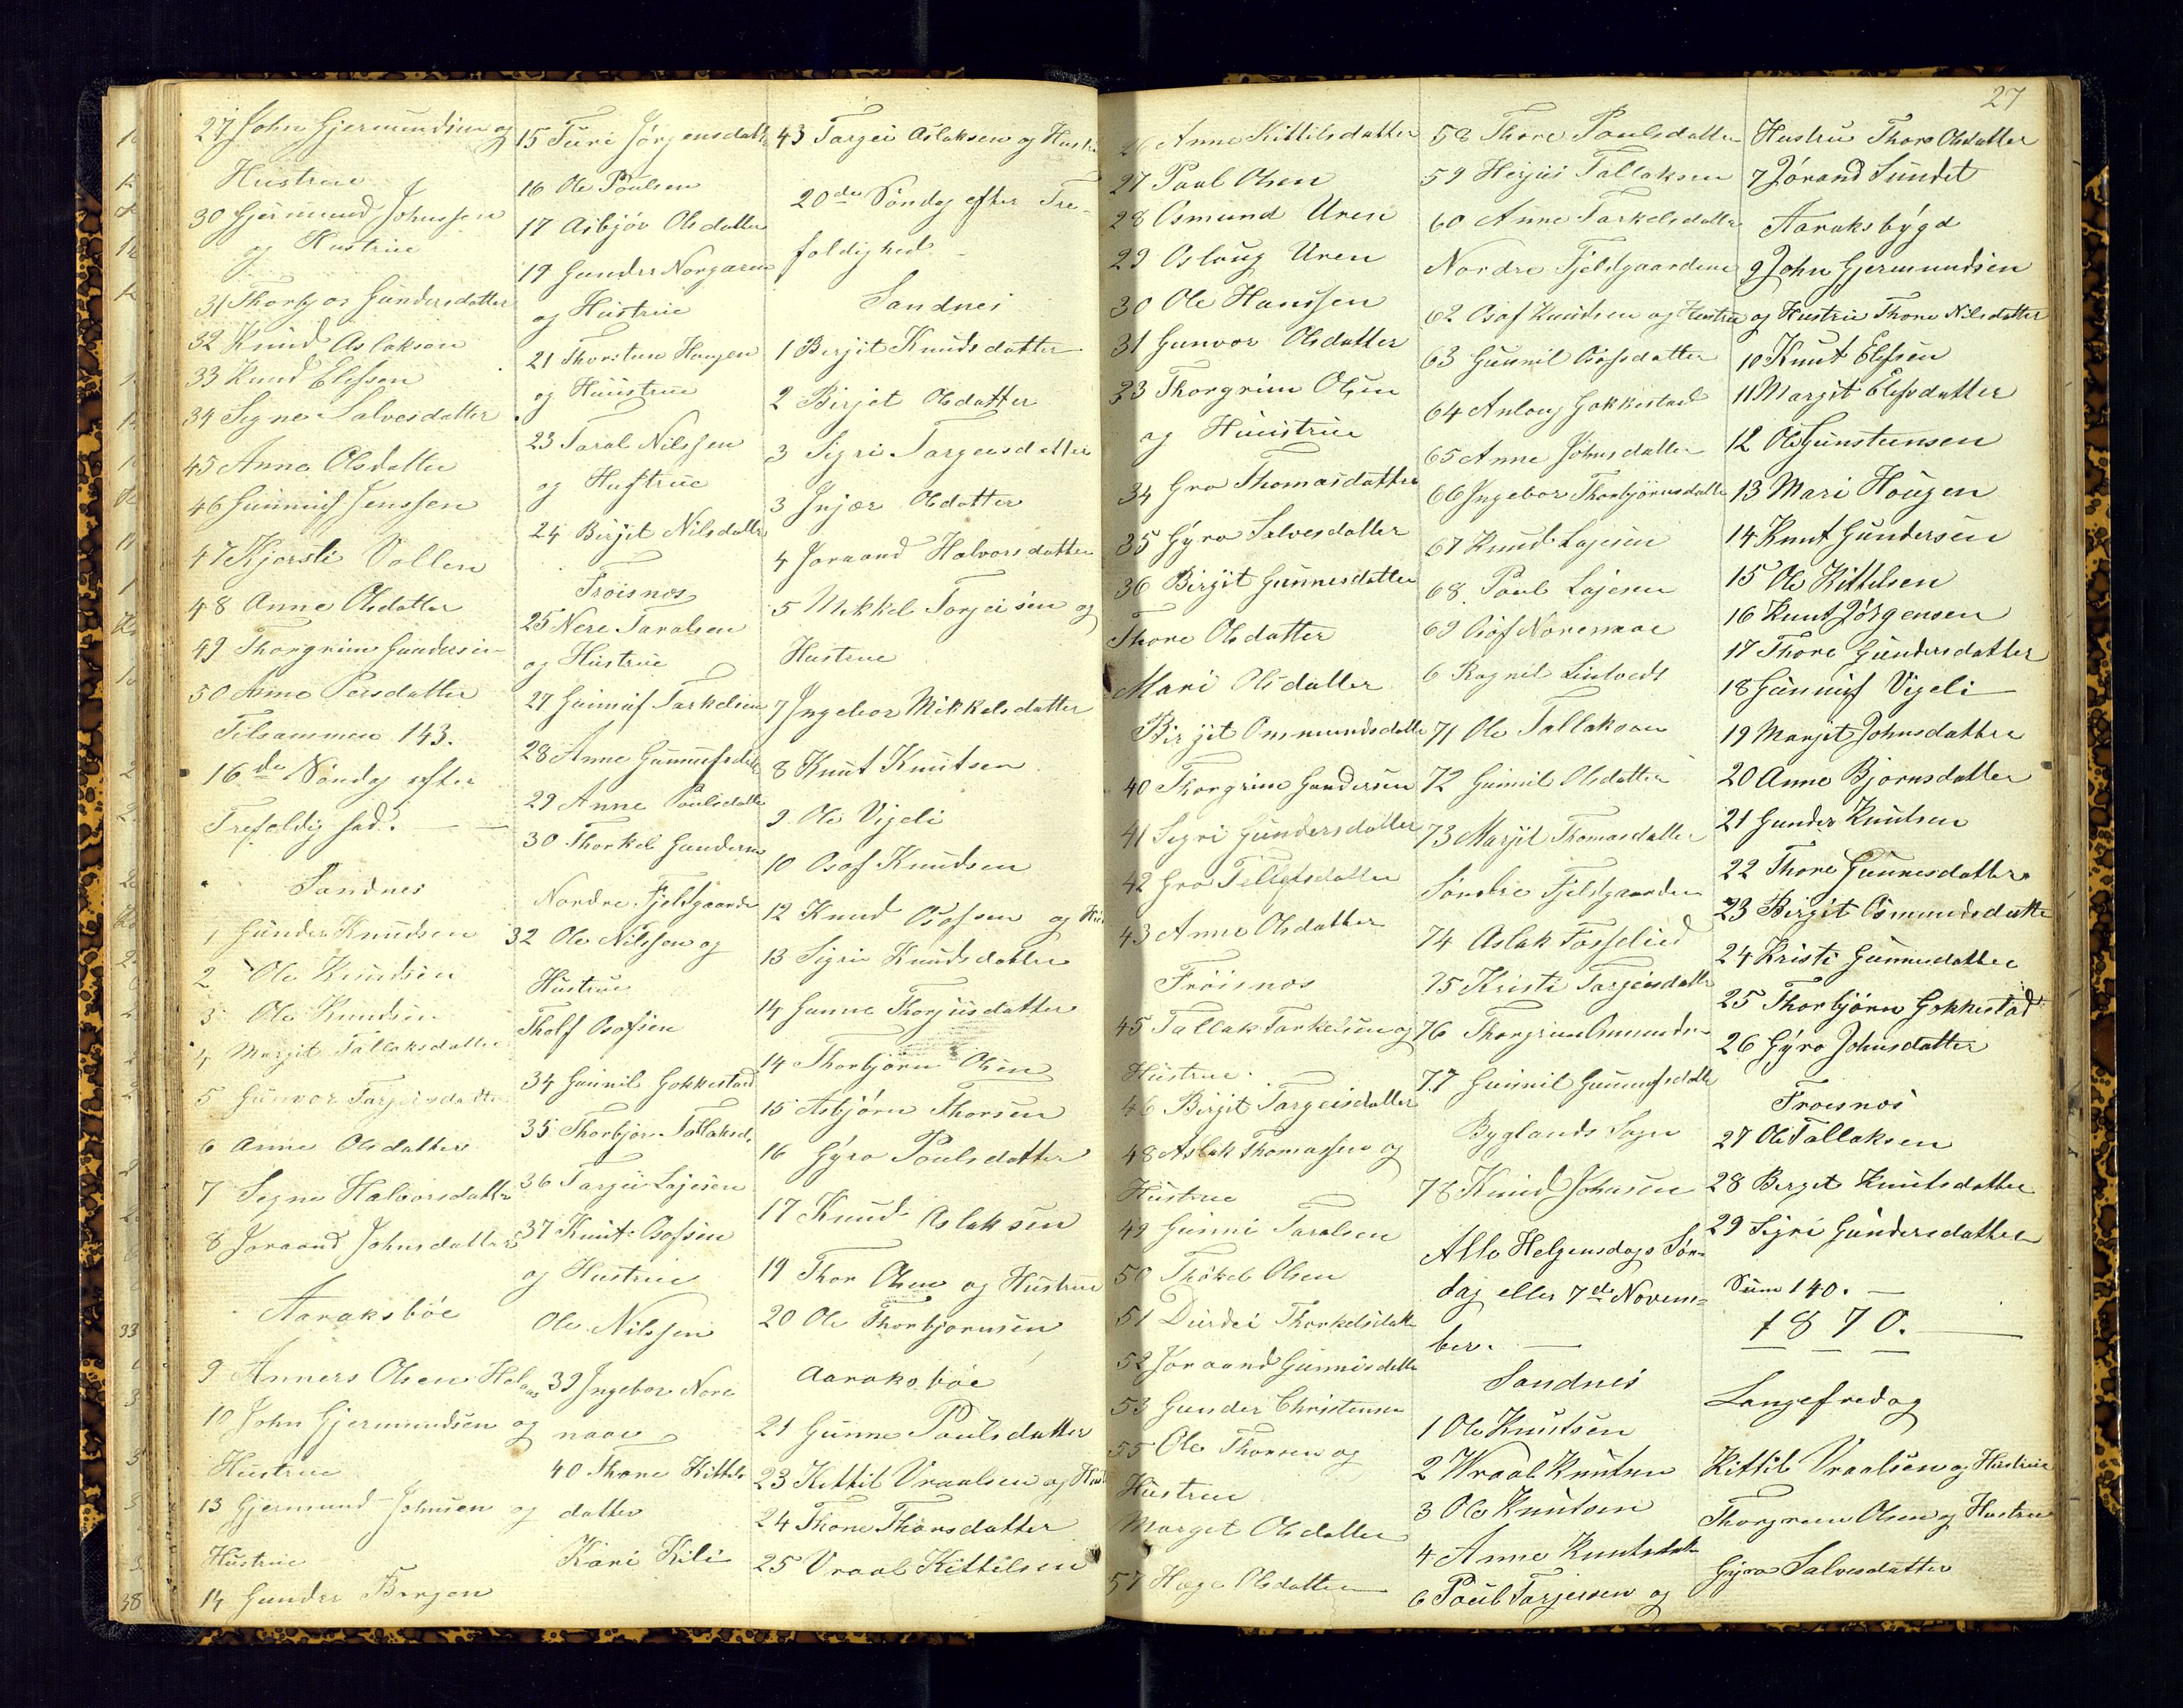 27 John Gjermundsen og
Hustrue
30 Gjermund Johnssen
og Hustrue
31 Thorbjør Gundersdatter
32 Knud Aslaksen
33 Knud Elefsen
34 Signe Salvesdatter
45 Anne Olsdatter
46 Gunnuf Jenssen
47 Kjersti Vollen
48 Anne Olsdatter
49 Thorgrim Gundersen
50 Anne Persdatter
Tilsammen 143.
16de Søndag efter
Trefoldighed.
Sandnes
1 Gunder Knudsen
2 Ole Knudsen
3 Ole Knudsen
4 Margit Tallaksdatter
5 Gunvor Targeisdatter
6 Anne Olsdatter
7 Segne Halvorsdatter
8 Joraand Johnsdatter
Aaraksbøe
9 Anners Olsen
10 John Gjermundsen og
Hustrue
13 Gjermund Johnsen og
Hustrue
14 Gunder Bergen
15 Turi Jørgensdatter
16 Ole Poulsen
17 Asbjør Olsdatter
19 Gunder Norgaren
og Hustrue
21 Thorsten Hougen
og Huustrue
23 Taral Nilssen
og Hustrue
24 Birjit Nilsdatter
Frøisnes
25 Nere Taralsen
og Hustrue
27 Gunnuf Tarkelsen
28 Anne Gunnufsdatter
29 Anne Poulsdatter
30 Thorkel Gundersen
Nordre Fjeldgaarde
32 Ole Nilssen og
Hustrue
Tholf Osofsen
34 Gunnil Gokkestad
35 Thorbjør Tallaksd.
36 Targei Lajesen
37 Knut Osofsen
og Hustrue
Ole Nilssen
39 Ingebor Nore
naae
40 Thore Kittils
datter
Kari Kili
43 Targei Aslaksen og Hustr
20de Søndag efter Tre-
foldighed.
Sandnes
1 Berjit Knudsdatter
2 Birjet Olsdatter
3 Sigri Targeisdatter
3 Injær Olsdatter
4 Joraand Halvorsdatter
5 Mekkel Torjeisen og
Hustrue
7 Ingebor Mikkelsdatter
8 Knut Knutsen
9 Ole Vigeli
10 Osof Knudsen
12 Knud Osofsen og Hu
13 Sigri Knudsdatter
14 Gunne Thorjusdatter
14 Thorbjørn Olsen
15 Asbjørn Thorsen
16 Gyro Poulsdatter
17 Knud Aslaksen
19 Thor Olsen og Hustrue
20 Ole Thorbjørnsen
Aaraksbøe
21 Gunne Poulsdatter
23 Kittil Vraalsen og Hust
24 Thone Thorsdatter
25 Vraal Kittilsen
27
26 Anne Kittilsdatter
27 Paul Olsen
28 Osmund Uren
29 Oslaug Uren
30 Ole Hanssen
31 Gunvor Olsdatter
33 Thorgrim Olsen
og Huustrue
34 Gro Thomasdatter
35 Gyro Salvesdatter
36 Birjit Gunnesdatter
Thore Olsdatter
Mari Olsdatter
Birjit Ommundsdatter
40 Thorgrim Gundersen
41 Segri Gundersdatter
42 Gro Tellefsdatter
43 Anne Olsdatter
Frøisnes
45 Tallak Tarkelsen og
Hustrue.
46 Birjit Targeisdatter
48 Aslak Thomassen og
Hustrue
49 Gunni Taralsen
50 Thorkel Olsen
51 Durdei Thorkelsdatt
52 Joraand Gunnisdatter
53 Gunder Christensen
55 Ole Thorsen og
Hustrue
Marget Olsdatter
57 Hæge Olsdatter
58 Thore Poulsdatter
59 Herjus Tallaksen
60 Anne Tarkelsdatter
Nordre Fjeldgaardene
62 Osof Knudsen og Hustrue
63 Gunnil Osofsdatter
64 Anlaug Gokkestad
65 Anne Johnsdatter
66 Ingebor Thorbjørnsdatter
67 Knud Lajesen
68 Poul Lajesen
69 Osof Norenaae
6 Ragnil Lintvedt
71 Ole Tallaksen
72 Gunnil Olsdatter
73 Marjit Thomasdatter
Søndre Fjeldgaarden
74 Aslak Fosselied
75 Kristi Targeisdatter
76 Thorgrim Omundsen
77 Gunnil Gunnufsdatter
Byglands Sogn
78 Knud Johnsen
Alle Helgensdags Søn-
dag eller 7de Novem-
ber.
Sandnes
1 Ole Knutsen
2 Wraal Knutsen
3 Ole Knutsen
4 Anne Knutsdatter
6 Poul Torjeisen og
Hustrue Thore Olsdatter
7 Jorand Sundet
Aaraksbygd
9 John Gjermundsen
og Hustrue Thone Nilsdatter
10 Knut Elefsen
11 Margit Elefsdatter
12 Ole Gunstensen
13 Mari Hougen
14 Knut Gundersen
15 Ole Kittilsen
16 Knut Jørgensen
17 Thore Gundersdatter
18 Gunnuf Vigeli
19 Margit Johnsdatter
20 Anne Bjørnsdatter
21 Gunder Knutsen
22 Thore Gunnesdatter
23 Birgit Osmundsdatter
24 Kristi Gunnesdatter
25 Thorbjørn Gokkestad
26 Gyro Johnsdatter
Frøisnes
27 Ole Tallaksen
28 Berget Knutsdatter
29 Sigri Gundersdatter
Sum 140.
1870.
Langefredag
Kittil Vraalsen og Hustrue
Thorgrem Olsen og Hustrue
Gyro Salvesdatter